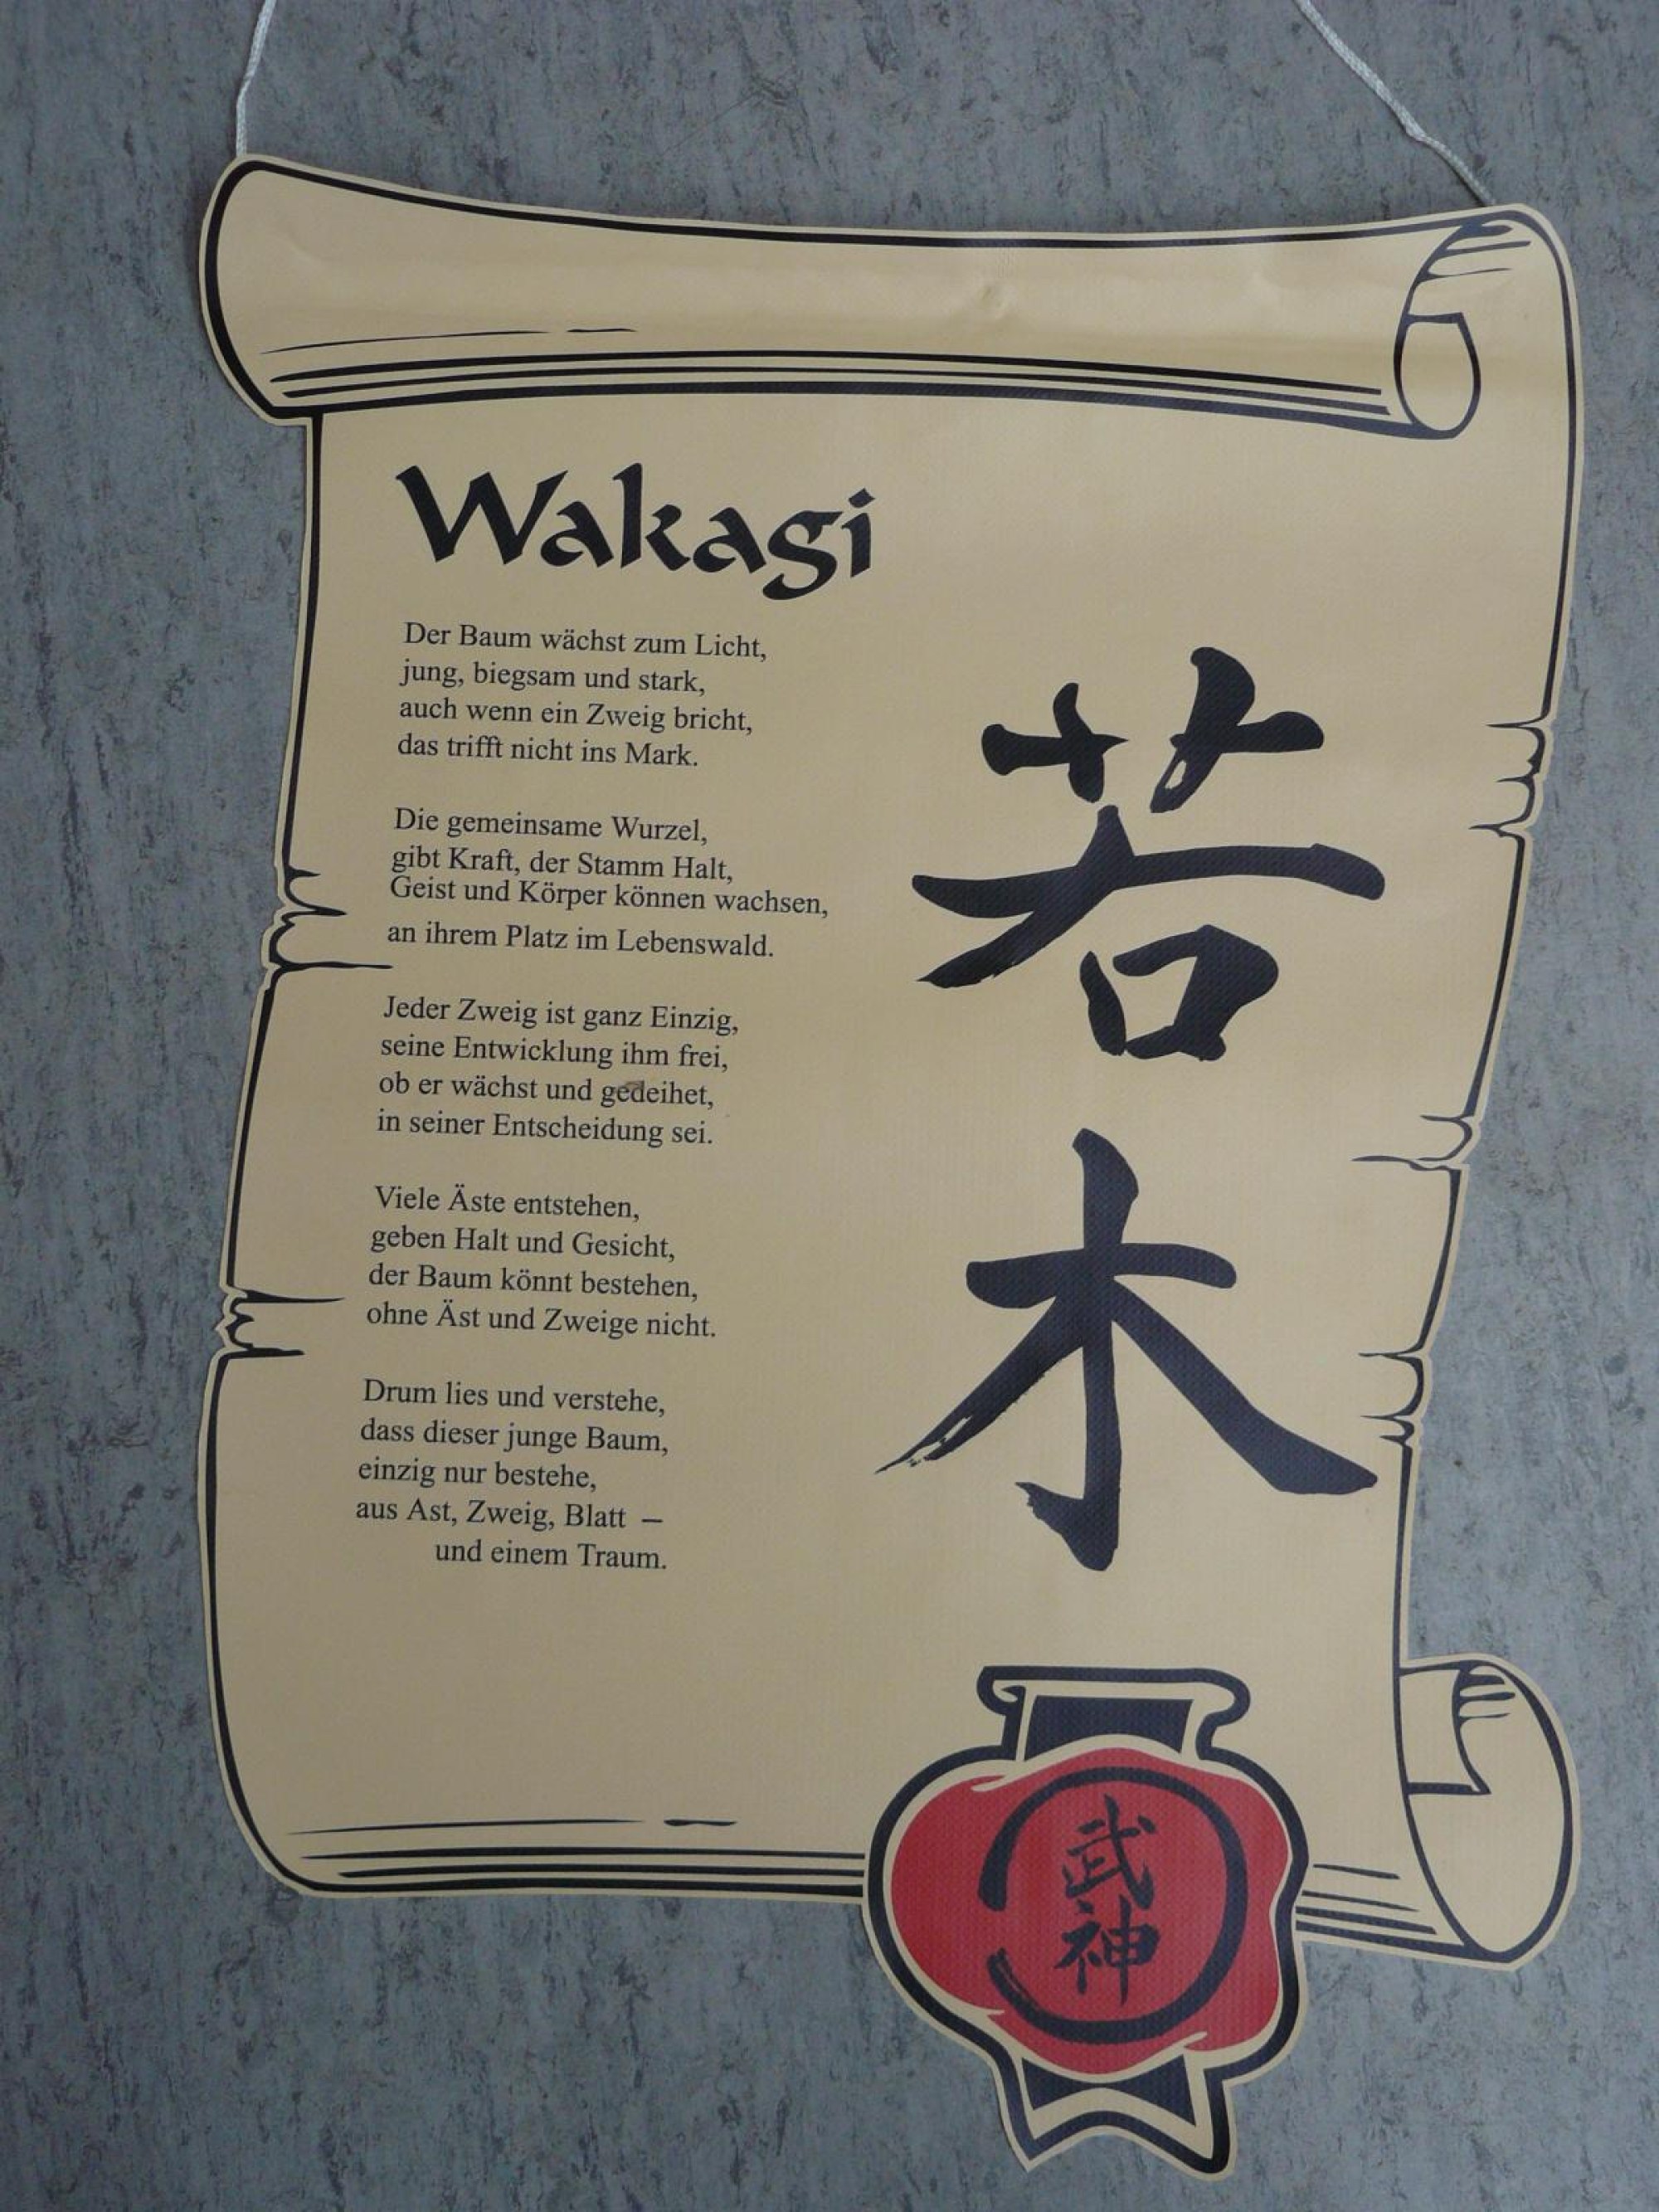 Wakagi
Der Baum wächst zum Licht,
jung, biegsam und stark,
auch wenn ein Zweig bricht,
das trifft nicht ins Mark.
Die gemeinsame Wurzel,
gibt Kraft, der Stamm Halt,
Geist und Körper können wachsen,
an ihrem Platz im Lebenswald.
Jeder Zweig ist ganz Einzig,
seine Entwicklung ihm frei,
ob er wächst und gedeihet,
in seiner Entscheidung sei.
Viele Äste entstehen,
geben Halt und Gesicht,
der Baum könnt bestehen,
ohne Äst und Zweige nicht.
Drum lies und verstehe,
dass dieser junge Baum,
einzig nur bestehe,
aus Ast, Zweig, Blatt –
und einem Traum.
若木
武神